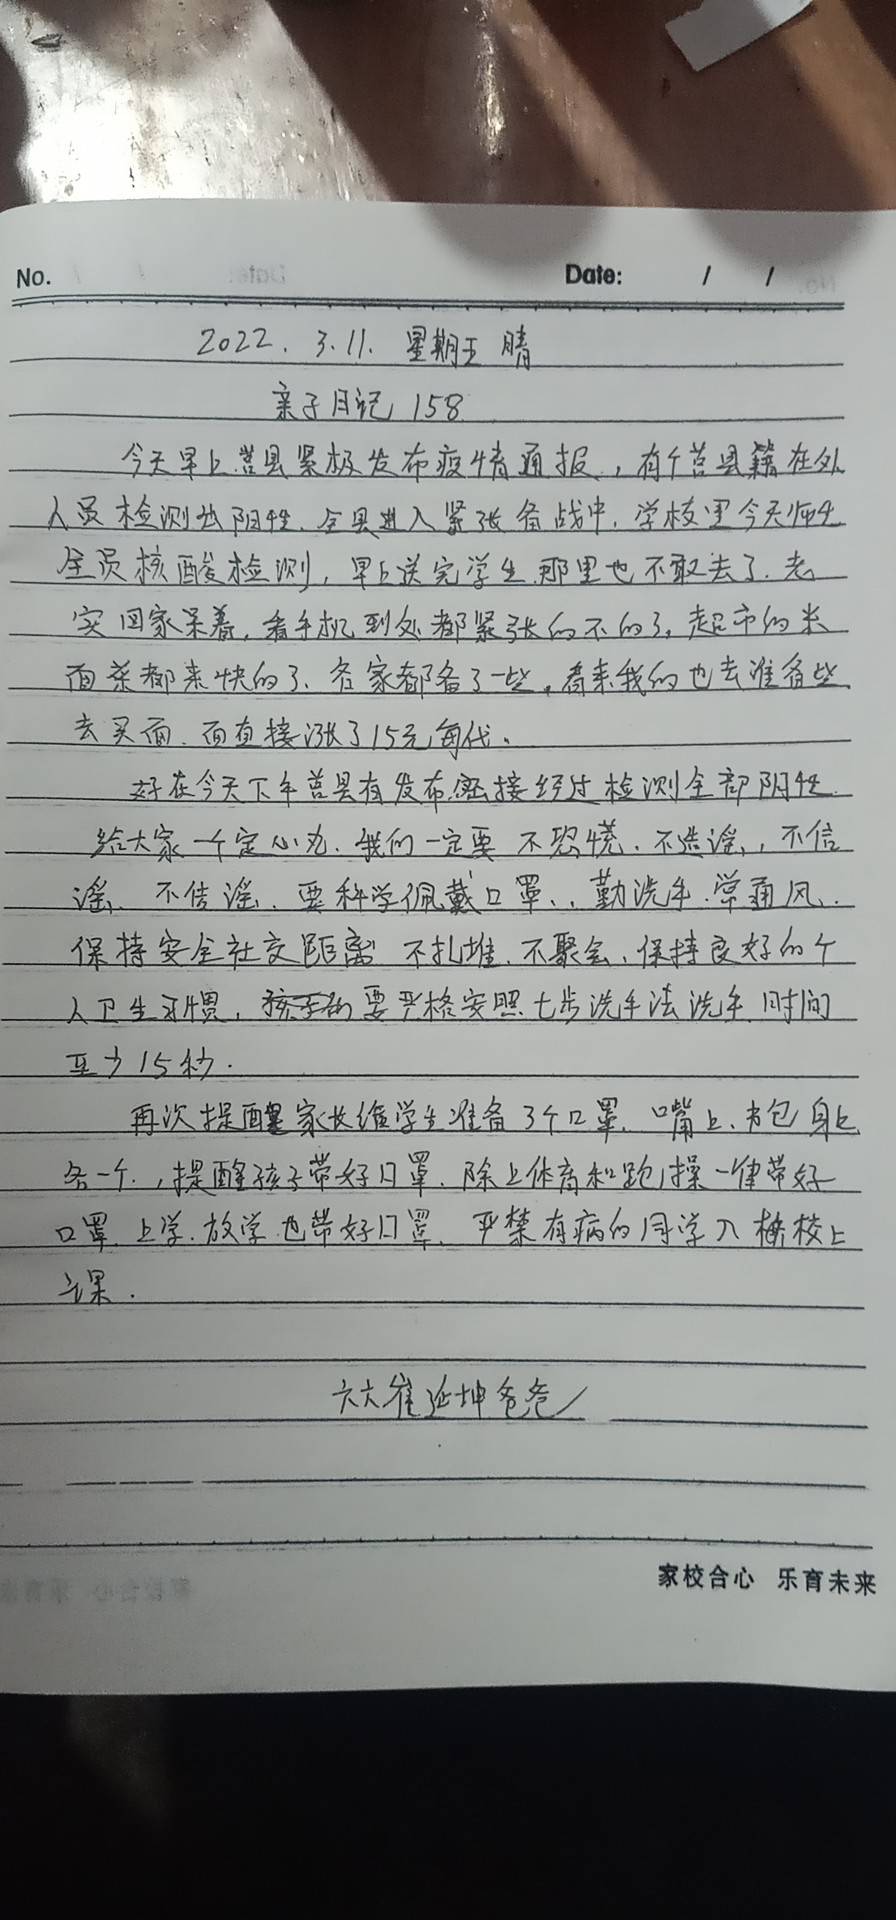 No. Date: / /
2022.3.11. 星期五 晴
亲子日记 158
今天早上莒县紧极发布疫情通报,有个莒县籍在外
人员检测出阳性.全县进入紧张备战中.学校里今天师生
全员核酸检测,早上送完学生.那里也不敢去了.老
实回家呆着,看手机到处都紧张的不的了,超市的米
面菜都卖快的了、各家都备了一些,看来我的也去准备些
去买面.面直接涨了15元每代。
好在今天下午莒县有发布密接经过检测全部阴性.
给大家一个定心丸.我们一定要不恐慌.不造谣,不信
谣、不传谣.要科学佩戴口罩、勤洗手.常通风.
保持安全社交距离 不扎堆.不聚会、保持良好的个
人卫生习惯,要严格安照七步洗手法洗手.时间
至少15秒.
再次提醒家长给学生准备3个口罩.嘴上、书包身上
各一个.,提醒孩子带好口罩.除上体育和跑操一律带好
口罩.上学.放学也带好口罩.严禁有病的同学入校上
课.
六六崔延坤爸爸
家校合心 乐育未来